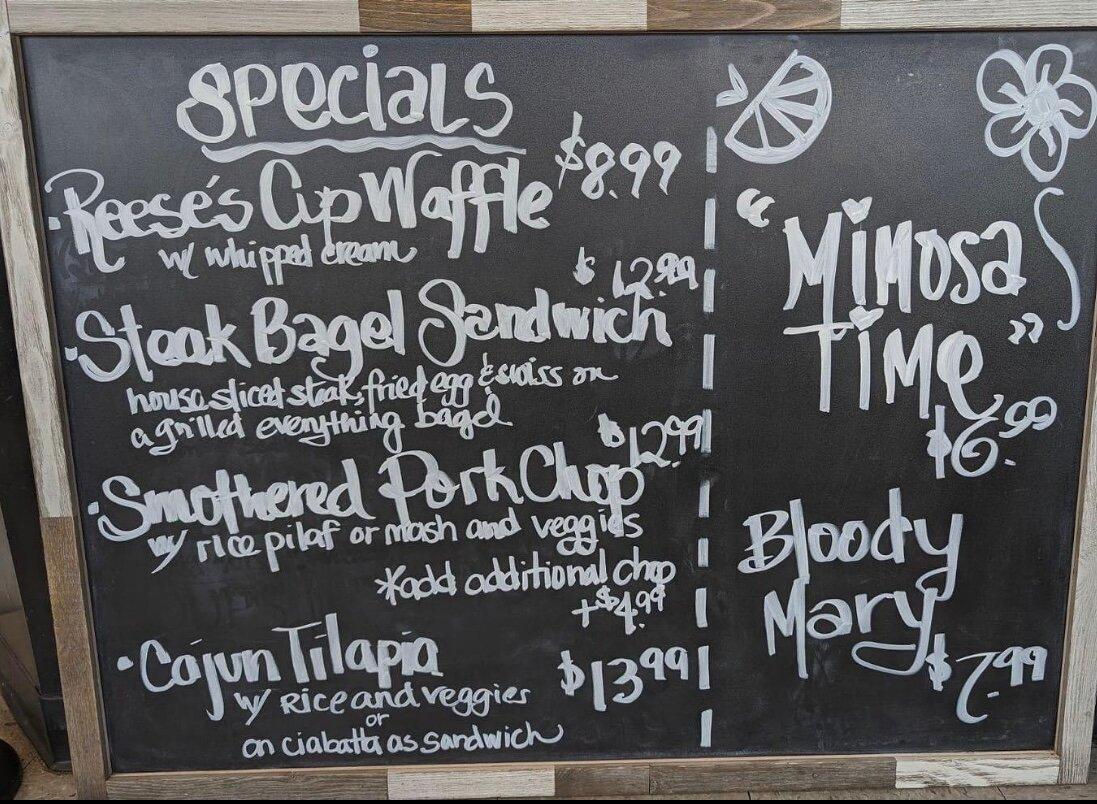 Specials
·Reese's Cup Waffle $8.99
w/ whipped cream
$12.99
·Steak Bagel Sandwich
house sliced steak, fried egg & swiss on
a grilled everything bagel
$12.99
·Smothered Pork Chop
w/ rice pilaf or mash and veggies
*add additional chop
+$4.99
·Cajun Tilapia $13.99
w/ Rice and veggies
or
on ciabatta as sandwich
"Mimosa
Time"
$6.99
Bloody
Mary
$7.99